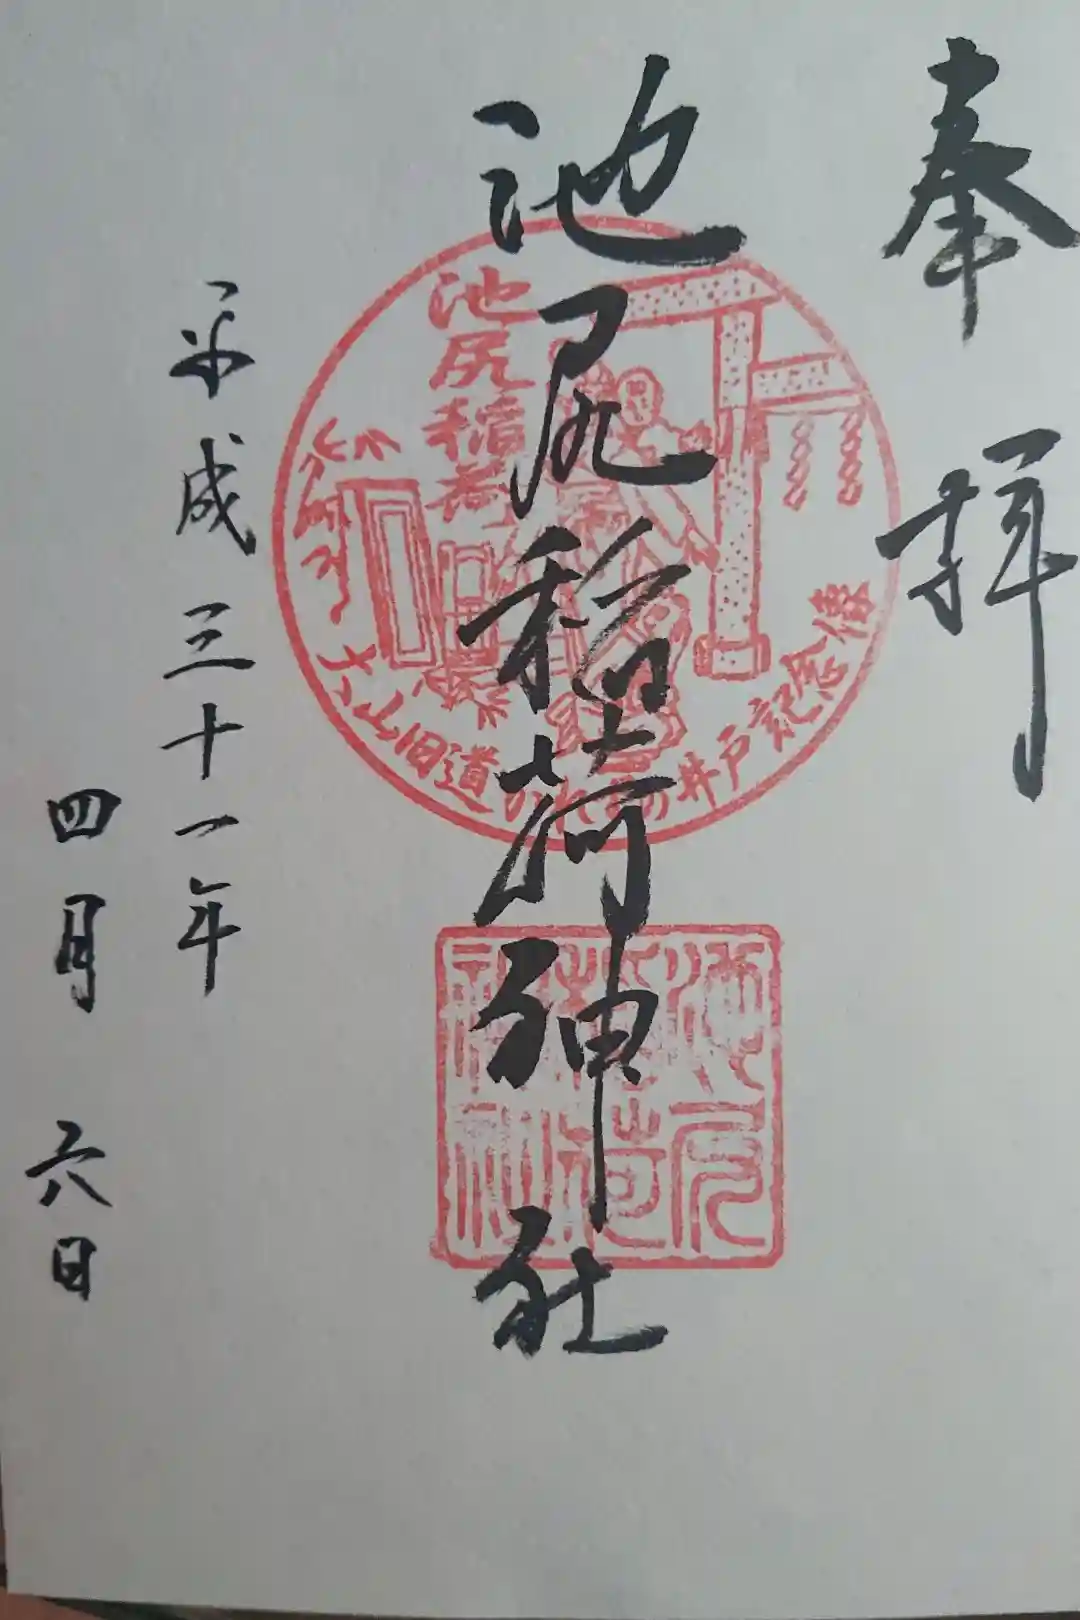 奉拝
池尻稲荷神社
池尻稲荷
大山旧道
井戸記念
池尻稲荷神社
平成三十一年
四月六日